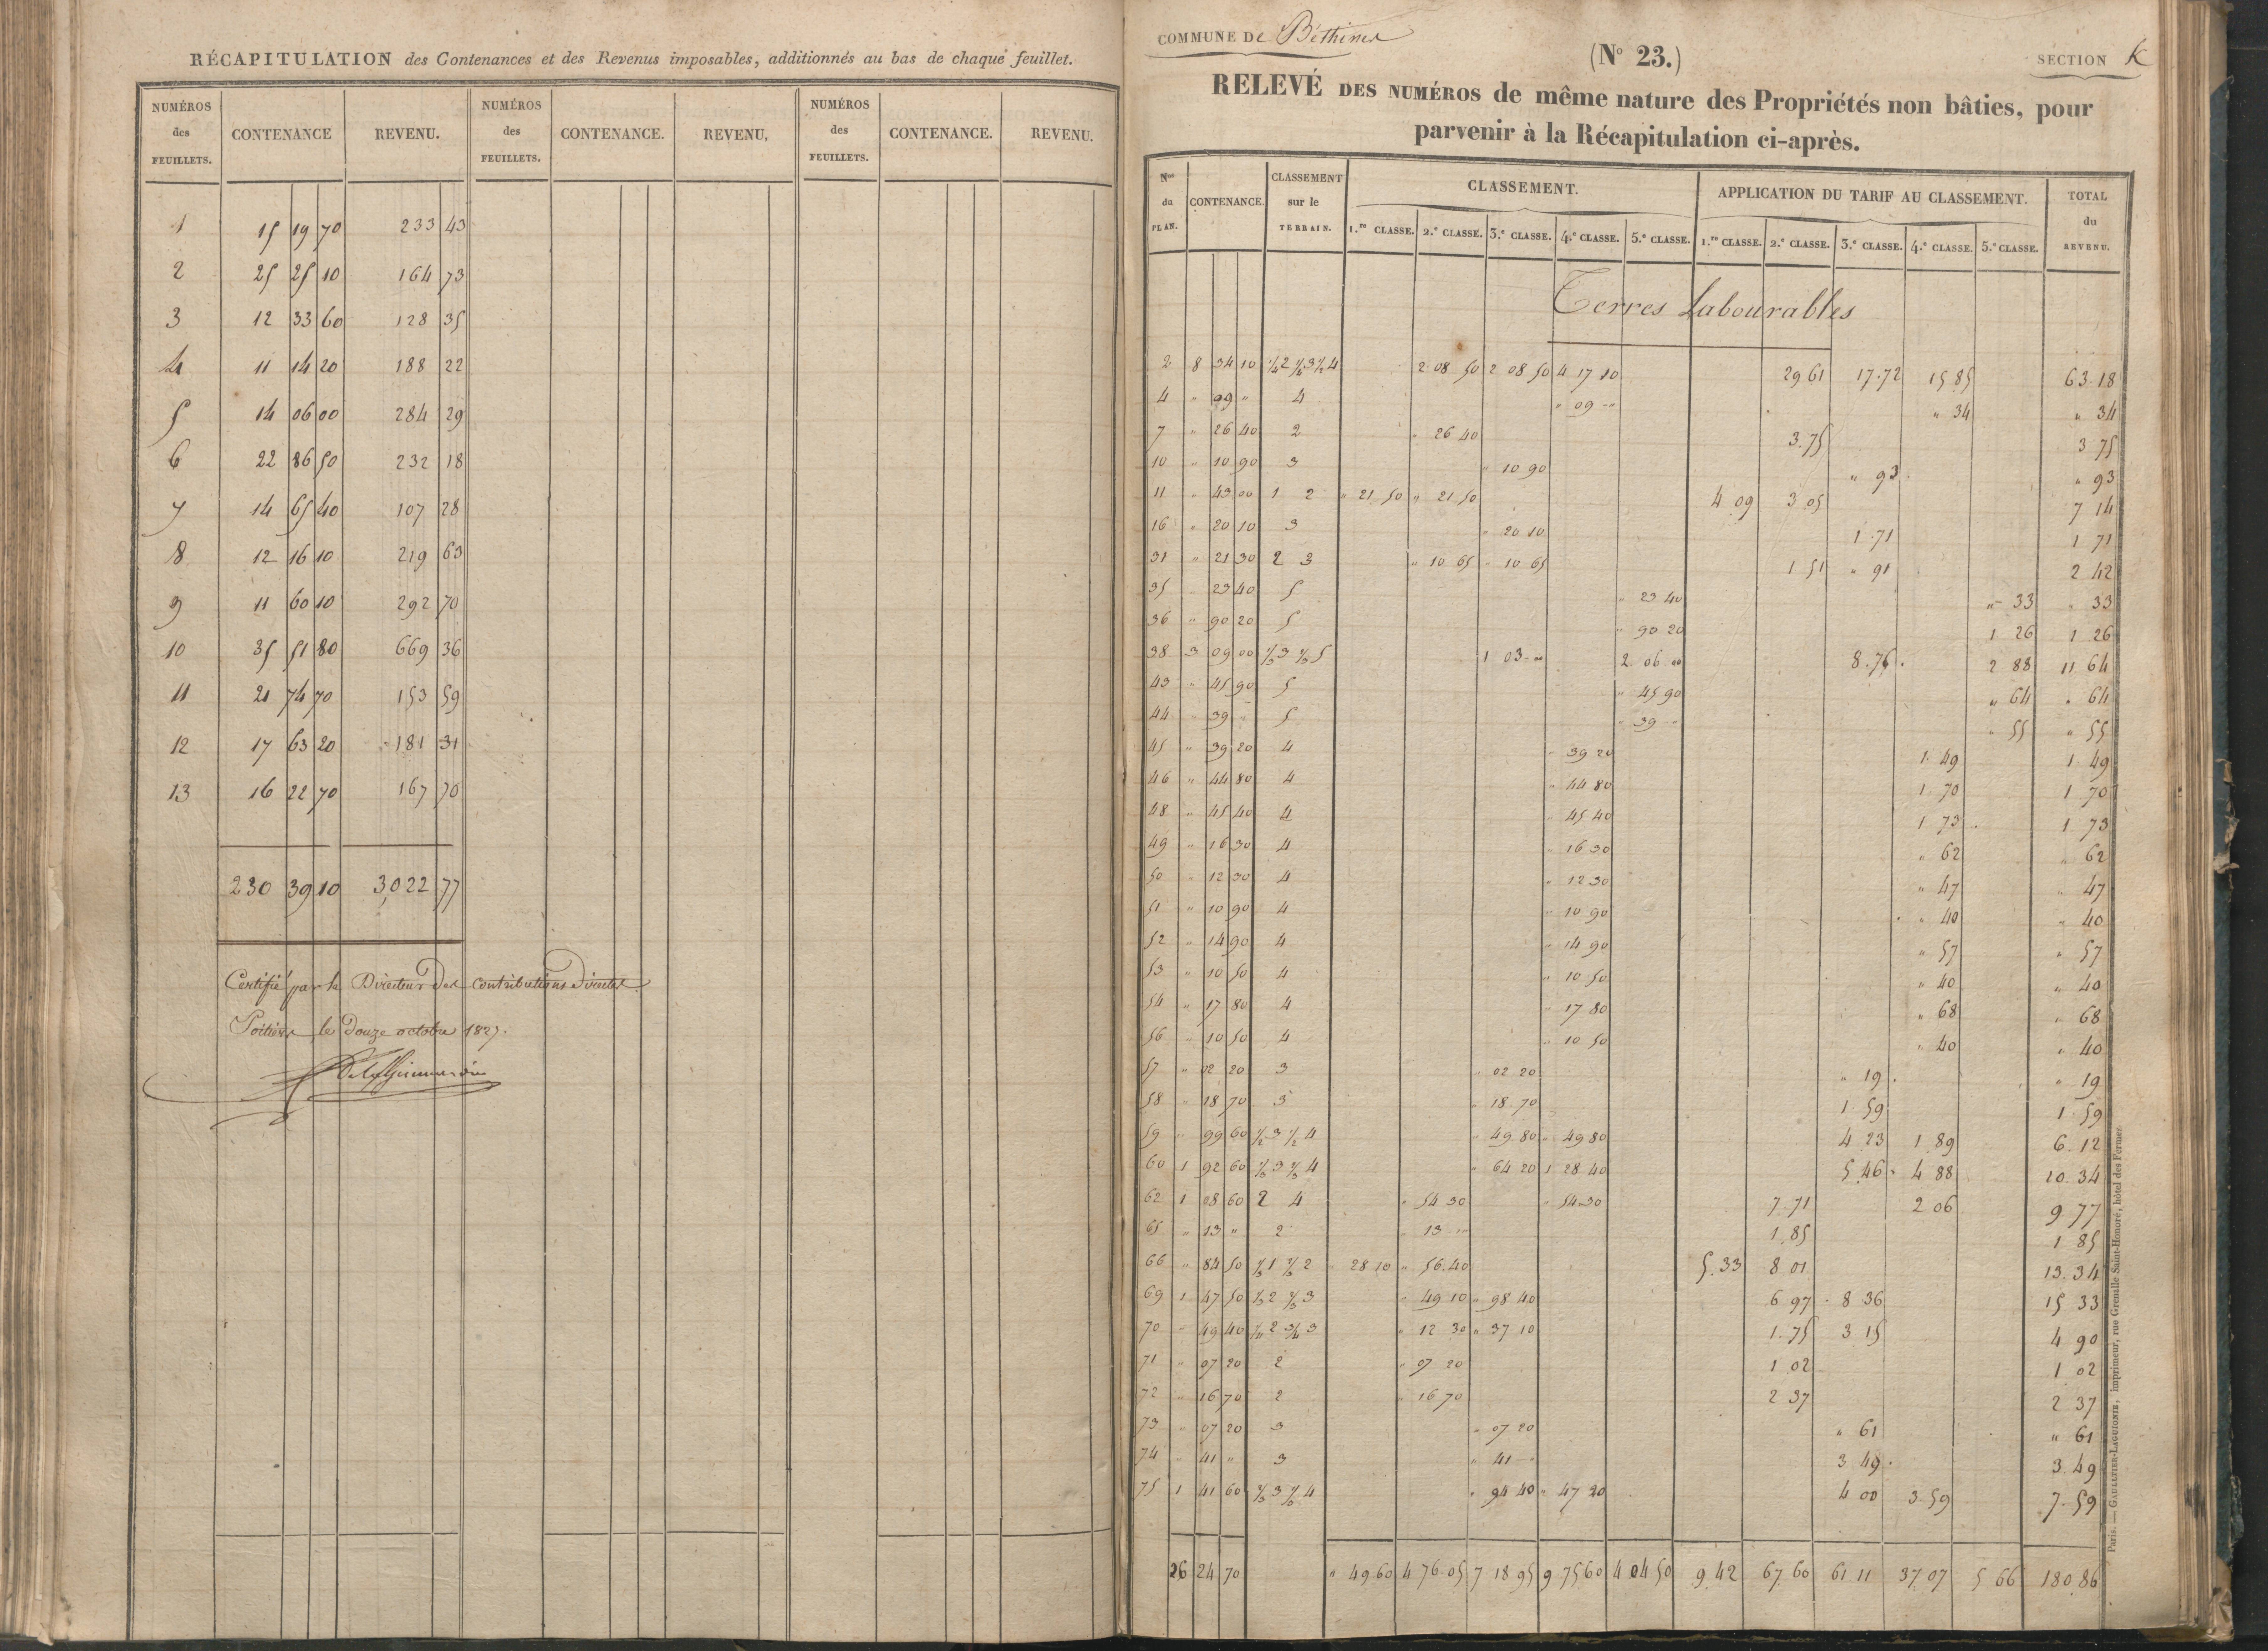 RÉCAPITULATION des Contenances et des Revenus imposables, additionnés au bas de chaque feuillet.
NUMÉROS des FEUILLETS. CONTENANCE REVENU. NUMÉROS des FEUILLETS. CONTENANCE. REVENU, NUMÉROS des FEUILLETS. CONTENANCE. REVENU.
1 15 19 70 233 43
2 25 25 10 164 73
3 12 33 60 128 35
4 11 14 20 188 22
5 14 06 00 284 29
6 22 86 50 232 18
7 14 65 40 107 28
8 12 16 10 219 63
9 11 60 10 292 70
10 35 51 80 669 36
11 21 74 70 153 59
12 17 63 20 181 31
13 16 22 70 167 70
230 39 10 3,022 77
Certifié par le Directeur des contributions Directes.
Poitiers, le Douze octobre 1827.
COMMUNE DE Béthines
(N° 23.)
SECTION K
RELEVÉ DES NUMÉROS de même nature des Propriétés non bâties, pour
parvenir à la Récapitulation ci-après.
Nos du PLAN. CONTENANCE. CLASSEMENT sur le TERRAIN. CLASSEMENT. APPLICATION DU TARIF AU CLASSEMENT. TOTAL du REVENU.
1.re CLASSE. 2.e CLASSE. 3.e CLASSE. 4.e CLASSE. 5.e CLASSE. 1.re CLASSE. 2.e CLASSE. 3.e CLASSE. 4.e CLASSE. 5.e CLASSE.
Terres Labourables
2 8 34 10 1/4 2 1/4 3 1/2 4 2 08 50 2 08 50 4 17 10 29 61 17.72 15 85 63.18
4 " 09 " 4 " 09 " " 34 " 34
7 " 26 40 2 " 26 40 3.75 3 75
10 " 10 90 3 " 10 90 " 93 " 93
11 " 43 00 1 2 " 21 50 " 21 50 4 09 3 05 7 14
16 " 20 10 3 " 20 10 1.71 1 71
31 " 21 30 2 3 " 10 65 " 10 65 1 51 " 91 2 42
35 " 23 40 5 " 23 40 " 33 " 33
36 " 90 20 5 " 90 20 1 26 1 26
38 3 09 00 1/3 3 2/3 5 1 03 " 2 06 " 8.76 2 88 11 64
43 " 45 90 5 " 45 90 " 64 " 64
44 " 39 " 5 " 39 " " 55 " 55
45 " 39 20 4 " 39 20 1 49 1 49
46 " 44 80 4 " 44 80 1 70 1 70
48 " 45 40 4 " 45 40 1 73 1 73
49 " 16 30 4 " 16 30 " 62 " 62
50 " 12 30 4 " 12 30 " 47 " 47
51 " 10 90 4 " 10 90 " 40 " 40
52 " 14 90 4 " 14 90 " 57 " 57
53 " 10 50 4 " 10 50 " 40 " 40
54 " 17 80 4 " 17 80 " 68 " 68
56 " 10 50 4 " 10 50 " 40 " 40
57 " 02 20 3 " 02 20 " 19 " 19
58 " 18 70 3 " 18.70 1 59 1 59
59 " 99 60 1/2 3 1/2 4 " 49 80 " 49 80 4 23 1 89 6 12
60 1 92 60 1/3 3 2/3 4 " 64 20 1 28 40 5 46 4 88 10.34
62 1 08 60 2 4 " 54 30 " 54 30 7.71 2 06 9 77
65 " 13 " 2 " 13 " 1.85 1 85
66 " 84 50 1/3 1 2/3 2 " 28 10 " 56.40 5.33 8 01 13.34
69 1 47 50 1/3 2 2/3 3 " 49 10 " 98 40 6 97 8 36 15 33
70 " 49 40 1/4 2 3/4 3 " 12 30 " 37 10 1.75 3 15 4 90
71 " 07 20 2 " 07 20 1 02 1 02
72 " 16 70 2 " 16 70 2 37 2 37
73 " 07 20 3 " 07 20 " 61 " 61
74 " 41 " 3 " 41 " 3 49 3.49
75 1 41 60 2/3 3 1/3 4 " 94 40 " 47 20 4 00 3.59 7.59
26 24 70 " 49 60 4 76 05 7 18 95 9 75 60 4 04 50 9.42 67 60 61 11 37 07 5 66 180.86
Paris. — GAULTIER-LAGUIONIE, imprimeur, rue Grenelle Saint-Honoré, hôtel des Fermes.